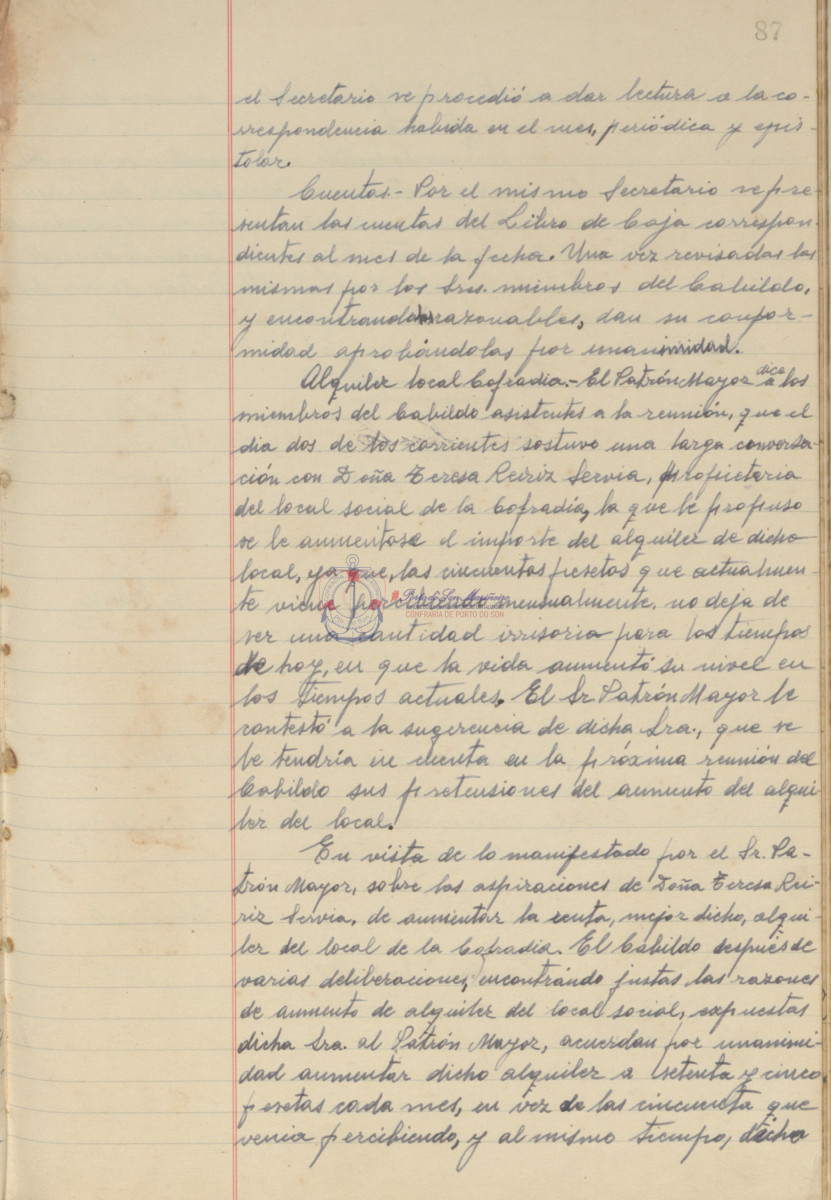 87
el Secretario se procedió a dar lectura a la co-
rrespondencia habida en el mes, periódica y epis-
tolar.
Cuentas.- Por el mismo Secretario se pre-
sentan las cuentas del Libro de Caja correspon-
dientes al mes de la fecha. Una vez revisadas las
mismas por los Sres. miembros del Cabildo,
y encontrandolas razonables, dan su confor-
midad aprobándolas por unanimidad.
Alquiler local Cofradia.- El Patrón Mayor dice a los
miembros del Cabildo asistentes a la reunión, que el
dia dos de los corrientes sostuvo una larga conversa-
ción con Doña Teresa Reiriz Servia, propietaria
del local social de la Cofradía, la que le propuso
se le aumentase el importe del alquiler de dicho
local, ya que, las cincuentas pesetas que actualmen-
te viene percibiendo mensualmente, no deja de
ser una cantidad irrisoria para los tiempos
de hoy, en que la vida aumentó su nivel en
los tiempos actuales. El Sr Patrón Mayor le
contestó a la sugerencia de dicha Sra., que se
le tendría en cuenta en la próxima reunión del
Cabildo sus pretensiones del aumento del alqui-
ler del local.
En vista de lo manifestado por el Sr. Pa-
trón Mayor, sobre las aspiraciones de Doña Teresa Rei-
riz Servia, de aumentar la renta, mejor dicho, alqui-
ler del local de la Cofradia. El Cabildo después de
varias deliberaciones, encontrándo justas las razones
de aumento de alquiler del local social, expuestas
dicha Sra. al Patrón Mayor, acuerdan por unanimi-
dad aumentar dicho alquiler a setenta y cinco
pesetas cada mes, en vez de las cincuenta que
venia percibiendo, y al mismo tiempo, dicha
CONFRARIA DE PORTO DO SON